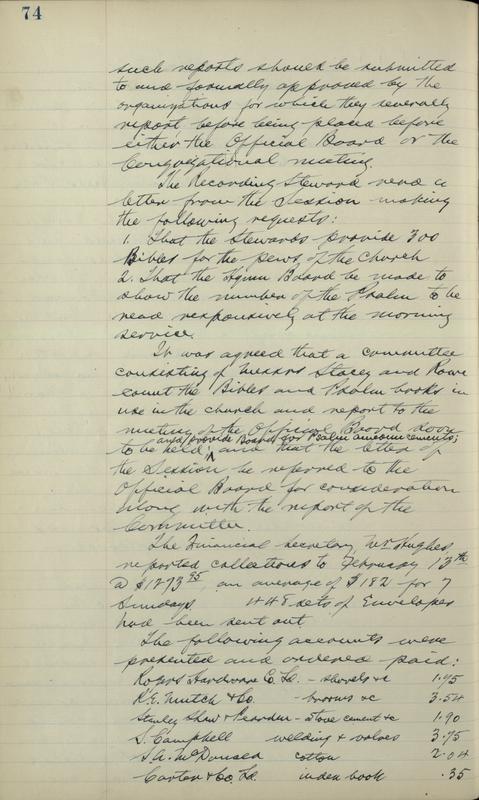 74
such reports should be submitted
to and formally approved by the
organizations for which they severally
report, before being placed before
either the Official Board or the
Congregational meeting.
The Recording Steward read a
letter from the Session making
the following requests:
1. That the Stewards provide 300
Bibles for the pews of the Church
2. That the Hymn Board be made to
show the number of the Psalm to be
read responsively at the morning
service.
It was agreed that a committee
consisting of Messrs Stacey and Rowe
count the Bibles and Psalm books in
use in the church and report to the
meeting of the Official Board soon
and provide Board for Psalm announcements;
to be held; and that the letter of
the Session be referred to the
Official Board for consideration
along with the report of the
Committee.
The Financial Secretary, Mr Hughes
reported collections to February 13th
a $1273.95, an average of $182 for 7
Sundays. 448 sets of Envelopes
had been sent out.
The following accounts were
presented and ordered paid:
Rogers Hardware Co. Ld. - shovels &c 1.95
R.E. Mutch & Co. - brooms &c 3.54
Stanley Shaw & Peardon - stove cement &c 1.90
S. Campbell welding & valves 3.75
S.A. McDonald cotton 2.04
Carter & Co. Ld. index book .35